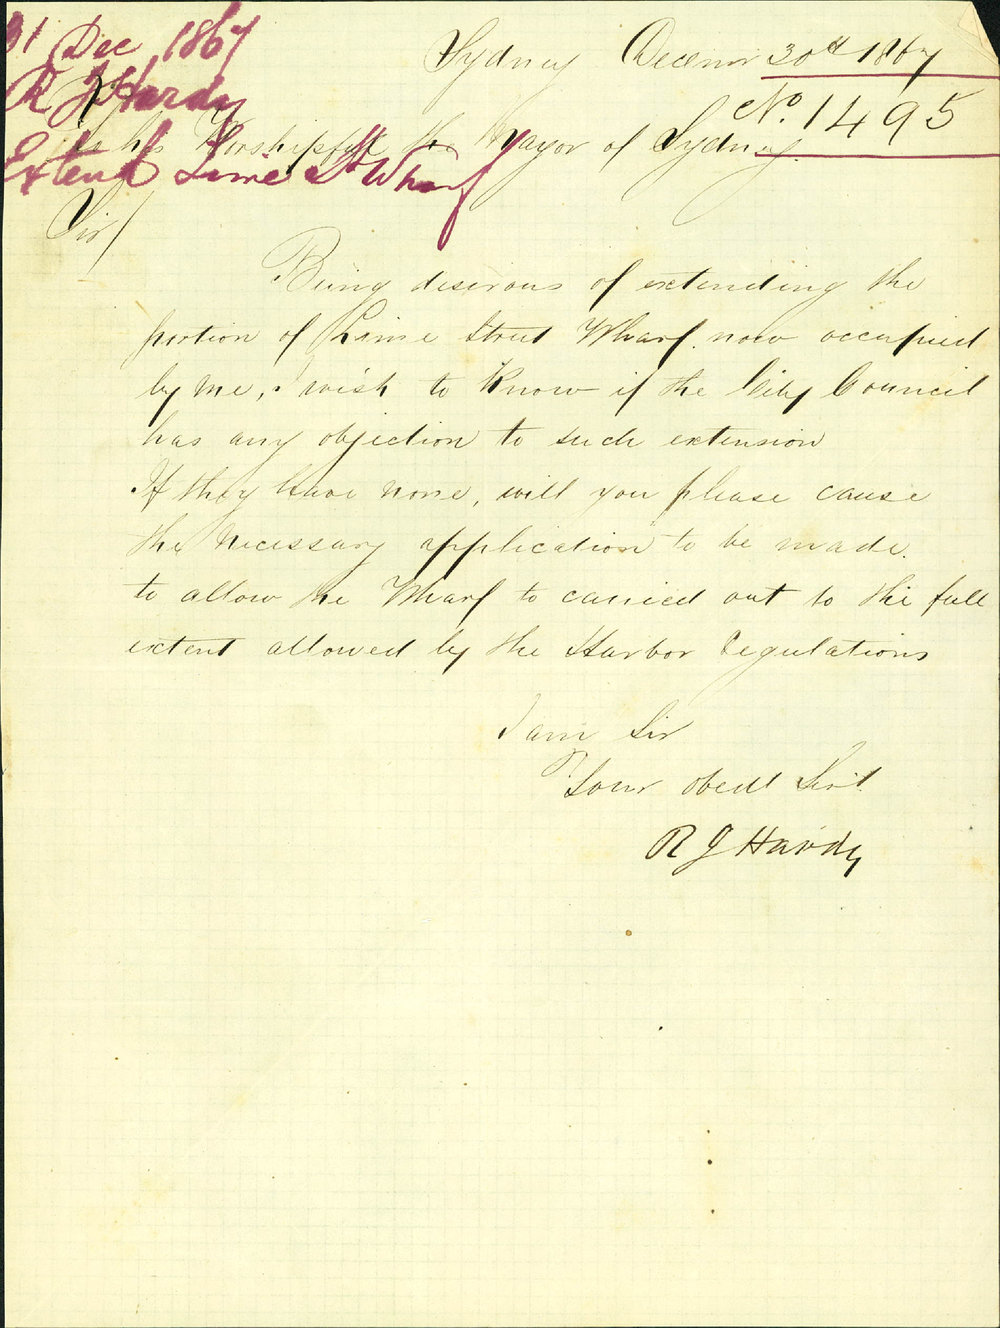 31 Dec 1867
R J Hardy
Extend Lime St Wharf
Sydney Decemr 30th 1867
No. 1495
To his Worshipful the Mayor of Sydney.
Sir/
Being desirous of extending the
portion of Lime Street Wharf now occupied
by me, I wish to know if the City Council
has any objection to such extension
If they have none, will you please cause
the necessary application to be made.
to allow the Wharf to carried out to the full
extent allowed by the Harbor Regulations
I am Sir
Your obedt Servt
R J Hardy